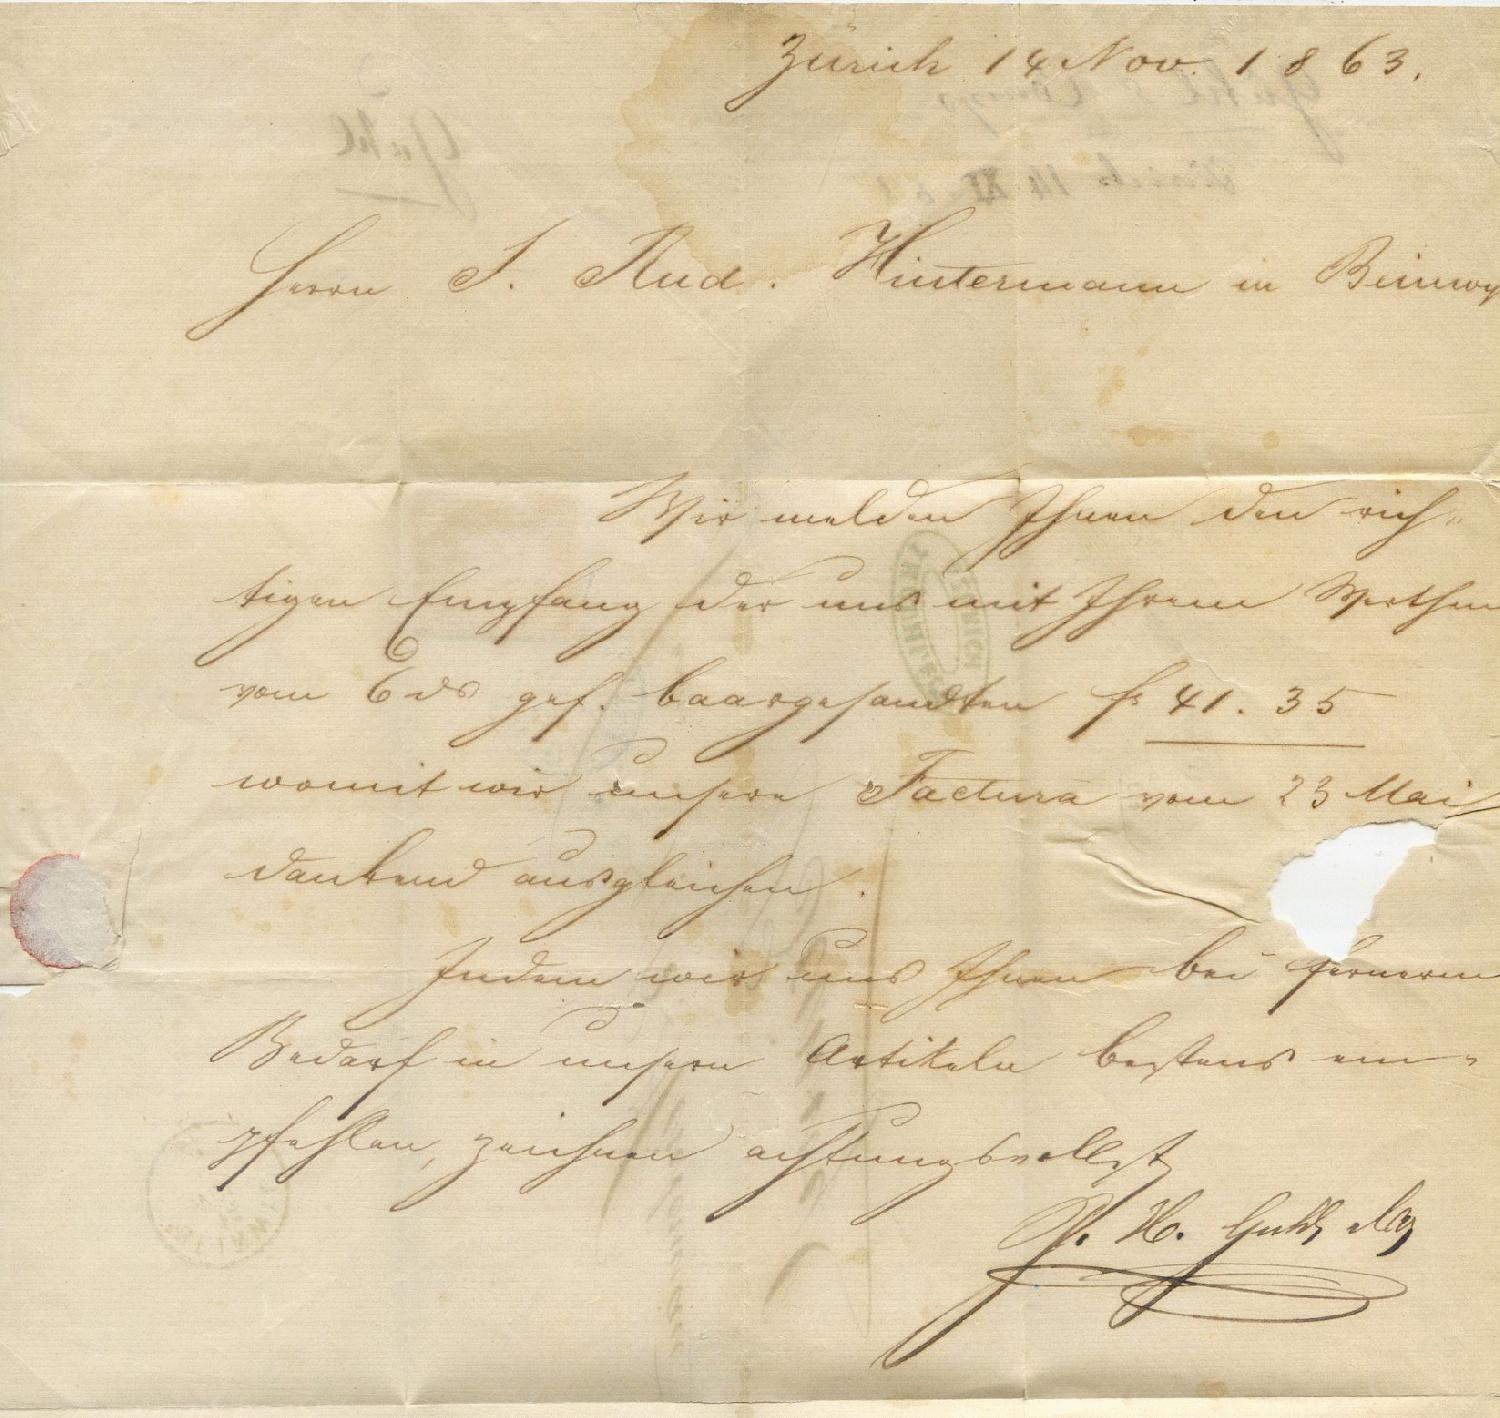 Zürich 14 Nov. 1863.
Herrn J. Rud. Hintermann in Beinwyl
Wir melden Ihnen den rich-
tigen Empfang der uns mit Ihrem Werthen
vom 6 ds gef. baargesandten fs 41. 35
womit wir unsere Factura vom 23 Mai
dankend ausgleichen.
Indem wir uns Ihnen bei fernerem
Bedarf in unsern Artikeln bestens em-
pfehlen, zeichnen achtungsvollst
H. Guhl